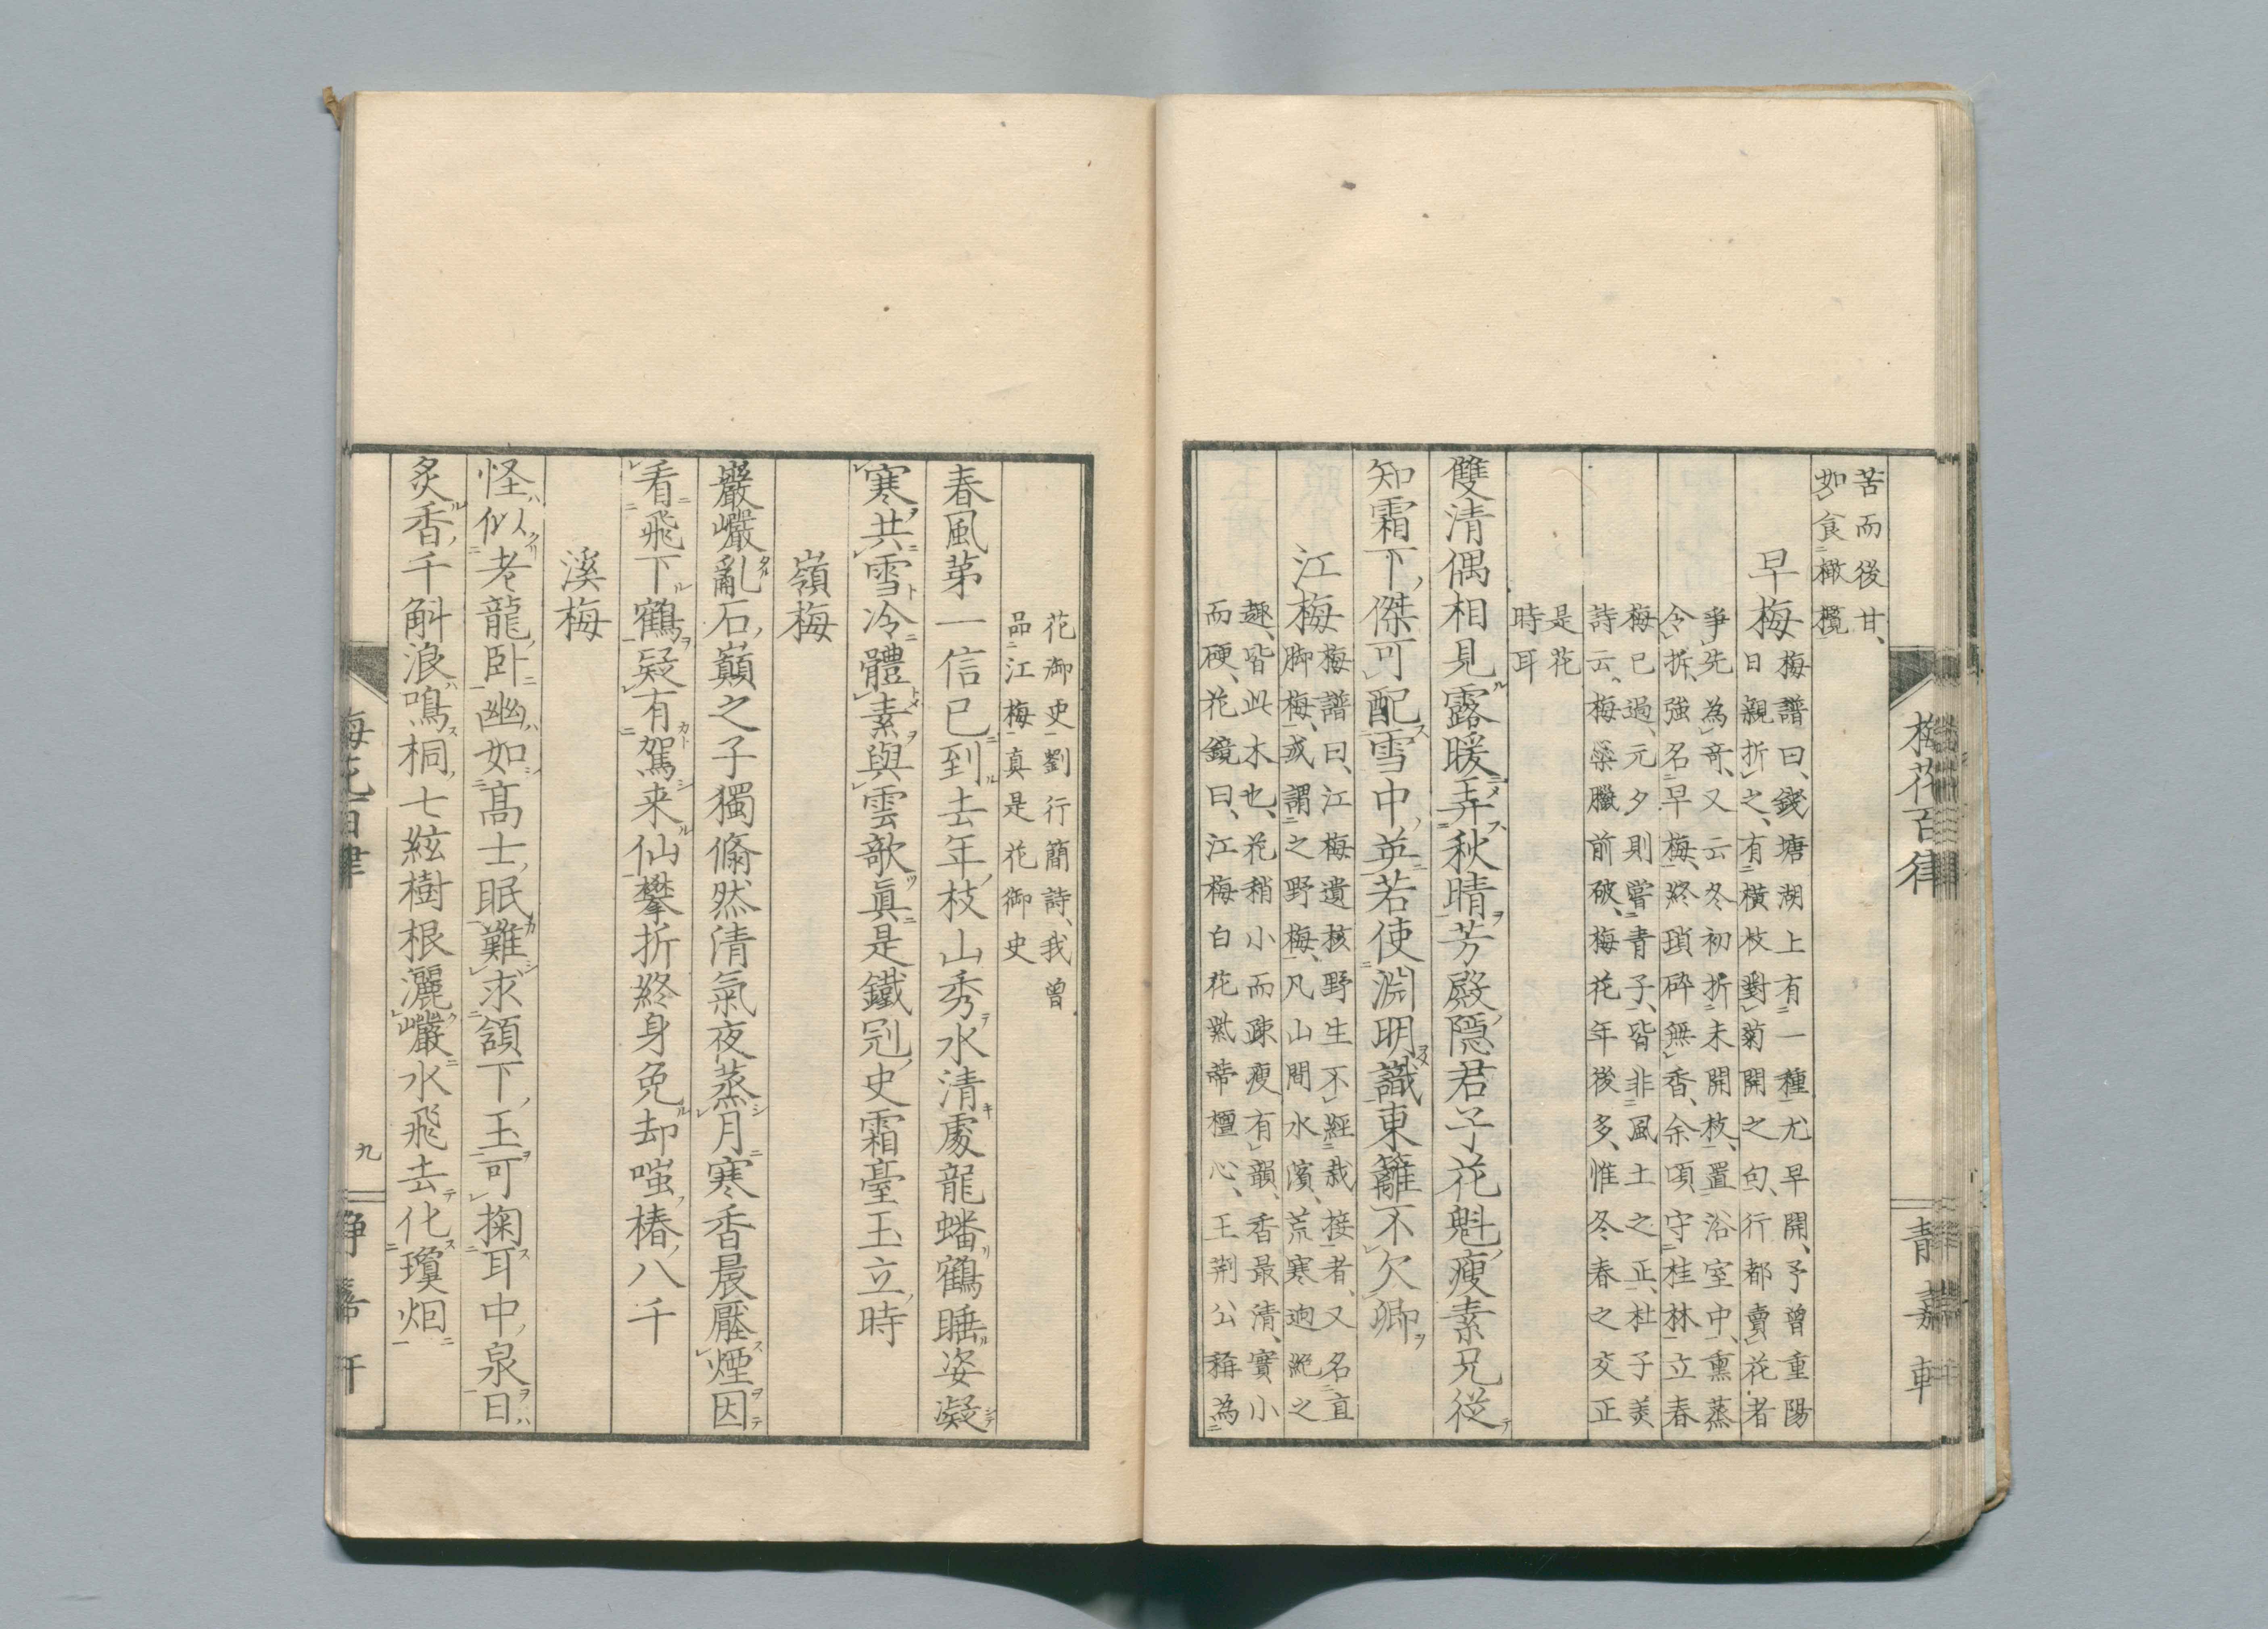 苦而後甘、
如食橄欖
早梅
梅譜曰、錢塘湖上有一種尤早開、予曾重陽
日親折之、有橫枝對菊開之句、行都賣花者
爭先為奇、又云冬初折未開枝、置浴室中、熏蒸
令拆、強名早梅、終瑣碎無香、余頃守桂林、立春
梅已過、元夕則嘗青子、皆非風土之正、杜子美
詩云、梅蘂臘前破、梅花年後多、惟冬春之交正
是花
時耳
雙清偶相見露暖弄秋晴芳殿隠君子花魁瘦素兄從
知霜下傑可配雪中英若使淵明識東籬不欠卿
江梅
梅譜曰、江梅遺核野生不經栽接者、又名直
脚梅、或謂之野梅、凡山間水濱、荒寒迥絶之
趣、皆此木也、花稍小而疎瘦有韻、香最清、實小
而硬、花鏡曰、江梅白花紫蒂檀心、王荆公稱為
梅花百律
靜嘉軒
花御史劉行簡詩、我曾
品江梅真是花御史
春風第一信已到去年枝山秀水清處龍蟠鶴睡姿凝
寒共雪冷體素與雲欹眞是鐵冠史霜臺玉立時
嶺梅
巖巖亂石巔之子獨翛然清氣夜蒸月寒香晨壓煙因
看飛下鶴疑有駕来仙攀折終身免却嗤椿八千
溪梅
怪似老龍卧幽如高士眠難求頷下玉可掬耳中泉日
炙香千斛浪鳴桐七絃樹根灑巖水飛去化瓊烟
梅花百律
九
靜嘉軒